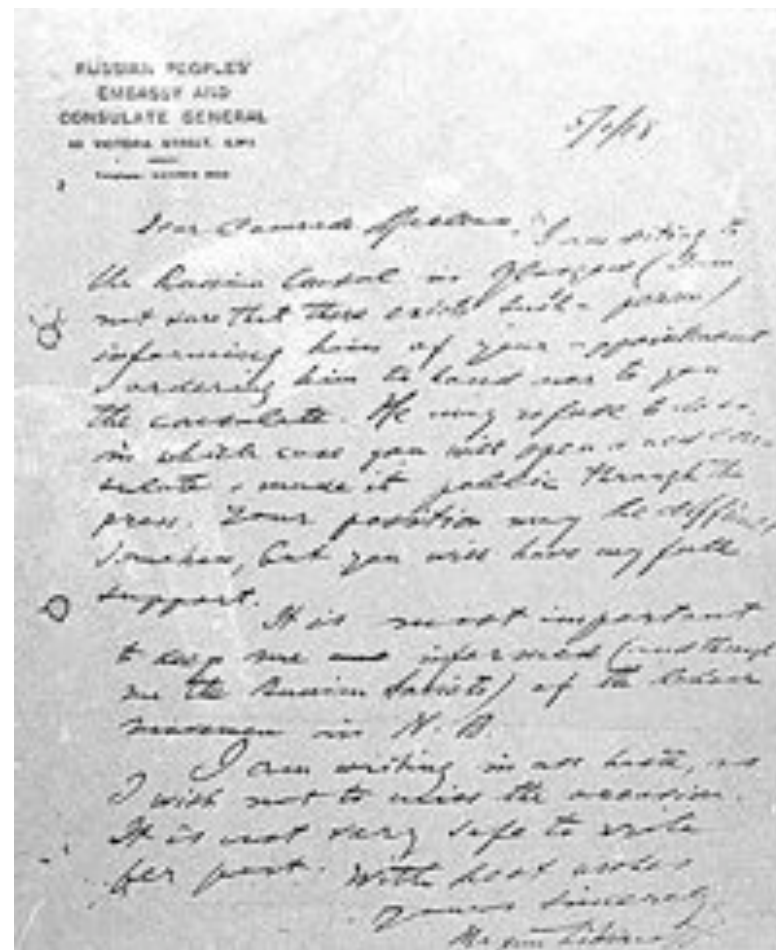 RUSSIAN PEOPLES'
EMBASSY AND
CONSULATE GENERAL
VICTORIA STREET, S.W.1
Dear Comrade I am writing to
the Russian Consul in Glasgow (I am
not sure that there exists such a person)
informing him of your appointment
ordering him to hand over to you
the consulate. He may refuse to do so,
in which case you will open a new con
sulate & made it public through the
press. Your position may be difficult
but you will have my full
support.
It is most important
to keep me informed (and through
me the Russian Soviets) of the
in N. B.
I am writing in haste, as
I wish not to miss the occasion.
It is not very safe to write
per post. With best wishes
Yours sincerely
Maxim